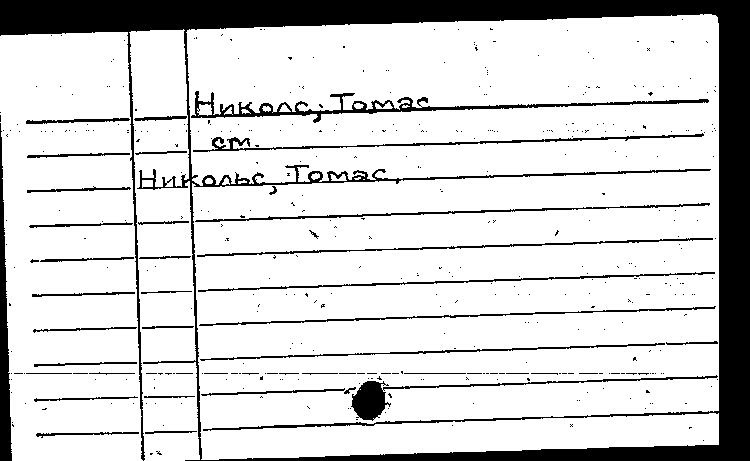 Николс, Томас
см.
Никольс, Томас.